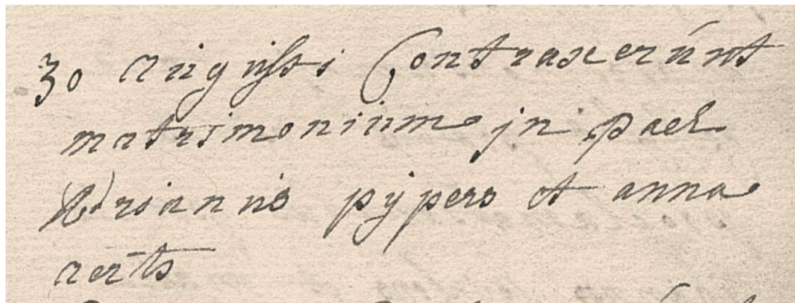 30 augusti Contraxerunt
matrimonium jn pael
Adrianus pijpers et anna
aerts